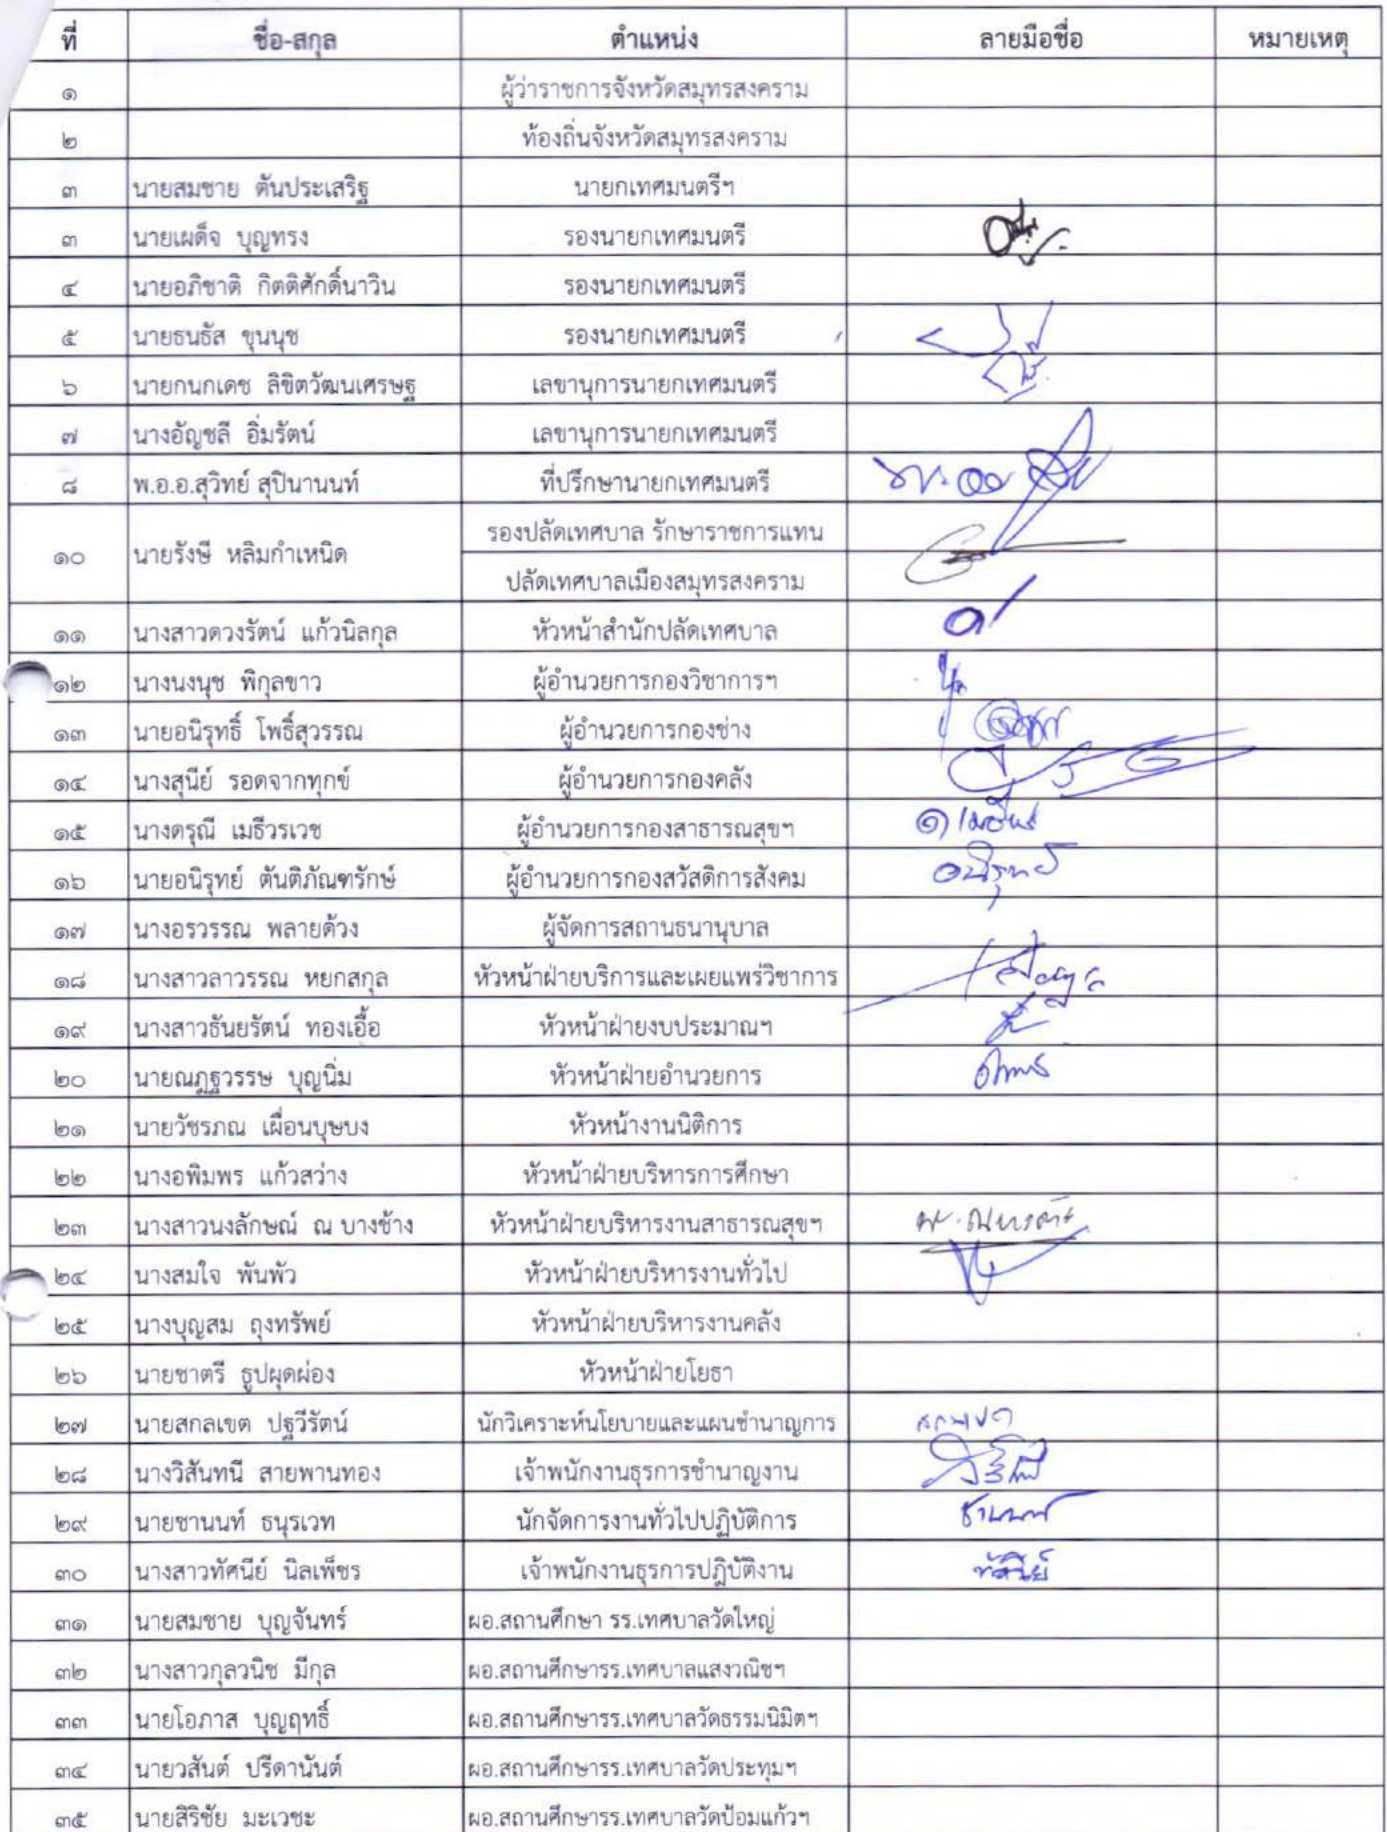 ที่ ชื่อ-สกุล ตำแหน่ง ลายมือชื่อ หมายเหตุ
๑ ผู้ว่าราชการจังหวัดสมุทรสงคราม
๒ ท้องถิ่นจังหวัดสมุทรสงคราม
๓ นายสมชาย ตันประเสริฐ นายกเทศมนตรีฯ
๓ นายเผด็จ บุญทรง รองนายกเทศมนตรี
๔ นายอภิชาติ กิตติศักดิ์นาวิน รองนายกเทศมนตรี
๕ นายธนธัส ขุนนุช รองนายกเทศมนตรี
๖ นายกนกเดช ลิขิตวัฒนเศรษฐ เลขานุการนายกเทศมนตรี
๗ นางอัญชลี อิ่มรัตน์ เลขานุการนายกเทศมนตรี
๘ พ.อ.อ.สุวิทย์ สุปินานนท์ ที่ปรึกษานายกเทศมนตรี
๑๐ นายรังษี หลิมกำเหนิด รองปลัดเทศบาล รักษาราชการแทน
ปลัดเทศบาลเมืองสมุทรสงคราม
๑๑ นางสาวดวงรัตน์ แก้วนิลกุล หัวหน้าสำนักปลัดเทศบาล
๑๒ นางนงนุช พิกุลขาว ผู้อำนวยการกองวิชาการฯ
๑๓ นายอนิรุทธิ์ โพธิ์สุวรรณ ผู้อำนวยการกองช่าง
๑๔ นางสุนีย์ รอดจากทุกข์ ผู้อำนวยการกองคลัง
๑๕ นางดรุณี เมธีวรเวช ผู้อำนวยการกองสาธารณสุขฯ
๑๖ นายอนิรุทย์ ตันติภัณฑรักษ์ ผู้อำนวยการกองสวัสดิการสังคม อนิรุทย์
๑๗ นางอรวรรณ พลายด้วง ผู้จัดการสถานธนานุบาล
๑๘ นางสาวลาวรรณ หยกสกุล หัวหน้าฝ่ายบริการและเผยแพร่วิชาการ
๑๙ นางสาวธันยรัตน์ ทองเอื้อ หัวหน้าฝ่ายงบประมาณฯ
๒๐ นายณภูฐวรรษ บุญนิ่ม หัวหน้าฝ่ายอำนวยการ
๒๑ นายวัชรภณ เผื่อนบุษบง หัวหน้างานนิติการ
๒๒ นางอพิมพร แก้วสว่าง หัวหน้าฝ่ายบริหารการศึกษา
๒๓ นางสาวนงลักษณ์ ณ บางช้าง หัวหน้าฝ่ายบริหารงานสาธารณสุขฯ
๒๔ นางสมใจ พันพัว หัวหน้าฝ่ายบริหารงานทั่วไป
๒๕ นางบุญสม ถุงทรัพย์ หัวหน้าฝ่ายบริหารงานคลัง
๒๖ นายชาตรี ธูปผุดผ่อง หัวหน้าฝ่ายโยธา
๒๗ นายสกลเขต ปฐวีรัตน์ นักวิเคราะห์นโยบายและแผนชำนาญการ
๒๘ นางวิสันทนี สายพานทอง เจ้าพนักงานธุรการชำนาญงาน
๒๙ นายชานนท์ ธนุรเวท นักจัดการงานทั่วไปปฏิบัติการ ชานนท์
๓๐ นางสาวทัศนีย์ นิลเพ็ชร เจ้าพนักงานธุรการปฎิบัติงาน ทัศนีย์
๓๑ นายสมชาย บุญจันทร์ ผอ.สถานศึกษา รร.เทศบาลวัดใหญ่
๓๒ นางสาวกุลวนิช มีกุล ผอ.สถานศึกษารร.เทศบาลแสงวณิชฯ
๓๓ นายโอภาส บุญฤทธิ์ ผอ.สถานศึกษารร.เทศบาลวัดธรรมนิมิตฯ
๓๔ นายวสันต์ ปรีดานันต์ ผอ.สถานศึกษารร.เทศบาลวัดประทุมฯ
๓๕ นายสิริชัย มะเวชะ ผอ.สถานศึกษารร.เทศบาลวัดป้อมแก้วฯ